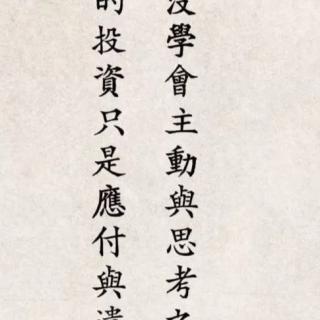 沒學會主動與思考之
的投資只是應付與遺